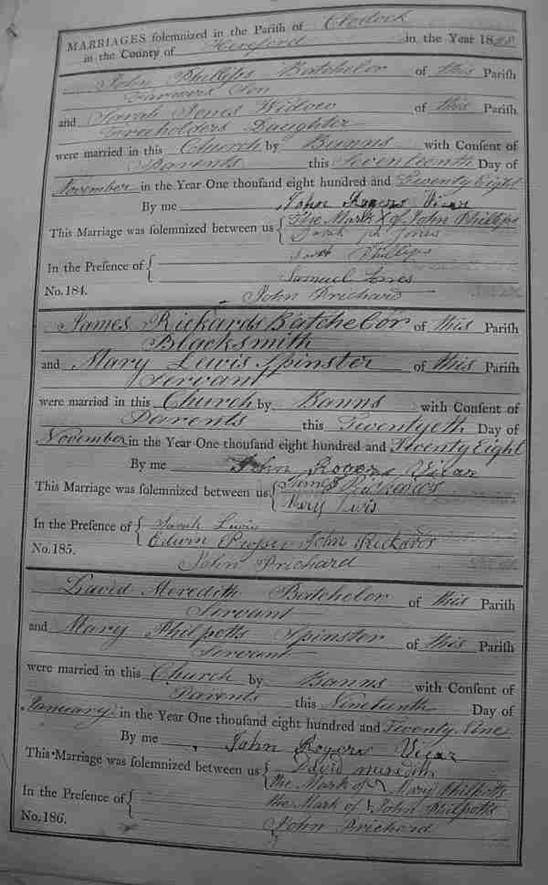 MARRIAGES solemnized in the Parish of Clodock
in the County of Hereford in the Year 1828
John Phillips Batchelor of this Parish
Farmers Son
and Sarah Jones Widow of this Parish
Freeholders Daughter
were married in this Church by Banns with Consent of
Parents this Seventeenth Day of
November in the Year One thousand eight hundred and Twenty Eight
By me John Rogers Vicar
This Marriage was solemnized between us { The Mark X of John Phillips
Sarah Jones
In the Presence of { Phillips
Samuel Jones
No. 184. John Prichard
James Rickards Batchelor of this Parish
Blacksmith
and Mary Lewis Spinster of this Parish
Servant
were married in this Church by Banns with Consent of
Parents this Twentyeth Day of
November in the Year One thousand eight hundred and Twenty Eight
By me John Rogers Vicar
This Marriage was solemnized between us { James Rickards
Mary Lewis
In the Presence of { Sarah Lewis
Edwin Prosser John Rickards
No. 185. John Prichard
David Meredith Batchelor of this Parish
Servant
and Mary Philpotts Spinster of this Parish
Servant
were married in this Church by Banns with Consent of
Parents this Nineteenth Day of
January in the Year One thousand eight hundred and Twenty Nine
By me John Rogers Vicar
This Marriage was solemnized between us { David Meredith
the Mark of Mary Philpotts
In the Presence of { the Mark of John Philpotts
No. 186. John Prichard